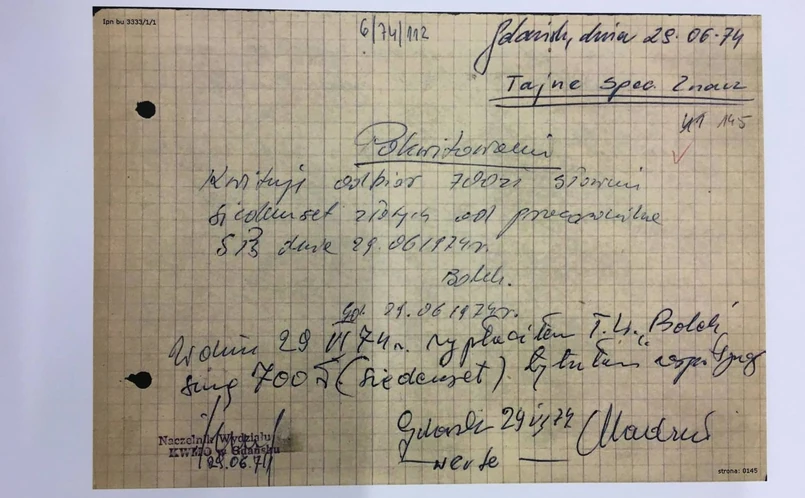 Ipn bu 3333/1/1
6/74/112
Gdańsk, dnia 29.06.74
Tajne spec. Znacz
145
Pokwitowanie
Kwituję odbiór 700zł słownie
siedemset złotych od pracownika
SB dnia 29.061974r.
Bolek.
Gd. 29.061974r.
W dniu 29 VI 74r. wypłaciłem T.W. Bolek
sumę 700 zł (siedemset). tytułem
Gdańsk 29 VI 74
verte
Naczelnik Wydziału
KWMO w Gdańsku
29.06.74
strona: 0145